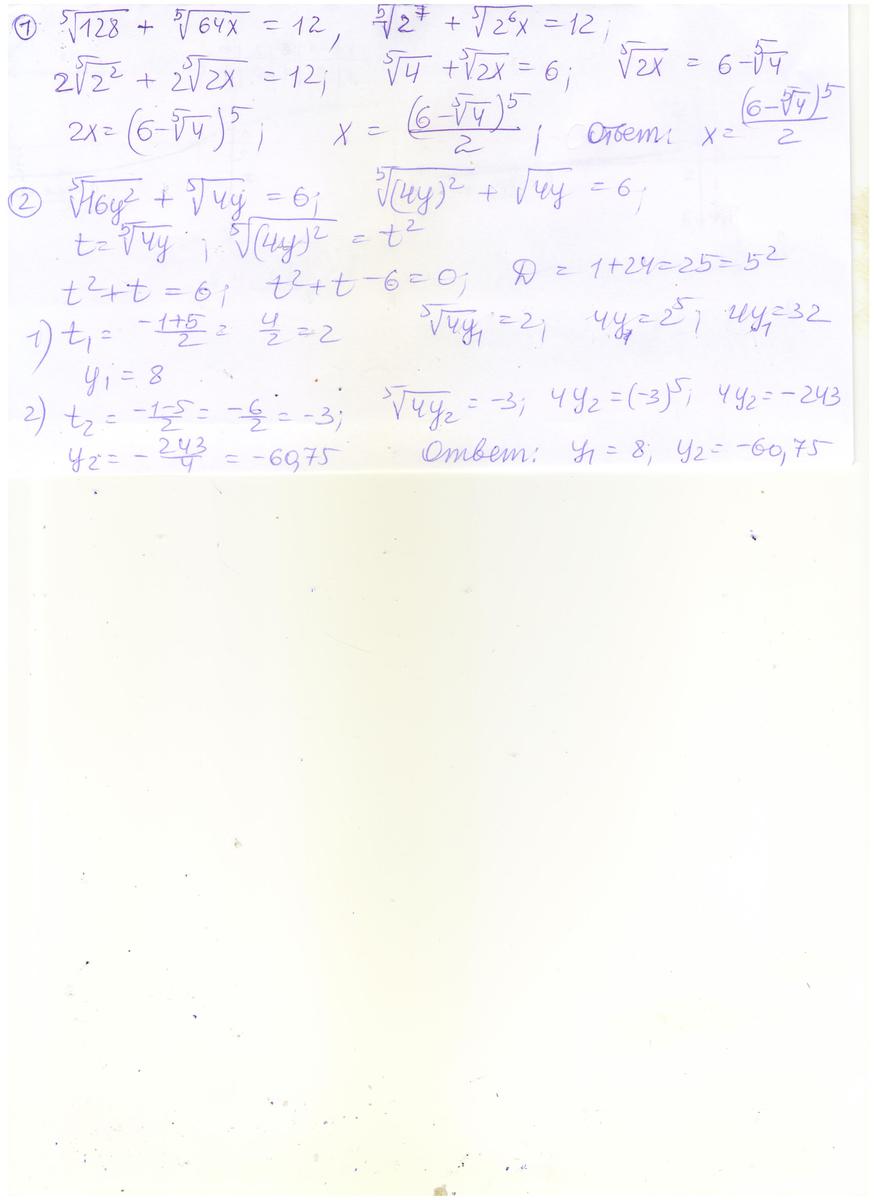 ① ⁵√128 + ⁵√64x = 12, ⁵√2⁷ + ⁵√2⁶x = 12;
2⁵√2² + 2⁵√2x = 12; ⁵√4 + ⁵√2x = 6; ⁵√2x = 6-⁵√4
2x = (6-⁵√4)⁵; x = (6-⁵√4)⁵/2; Ответ: x = (6-⁵√4)⁵/2
② ⁵√16y² + ⁵√4y = 6; ⁵√(4y)² + √4y = 6;
t = ⁵√4y; ⁵√(4y)² = t²
t²+t = 6; t²+t-6=0; D = 1+24=25=5²
1) t₁ = -1+5/2 = 4/2 = 2 ⁵√4y₁ = 2; 4y₁ = 2⁵; 4y₁ = 32
y₁ = 8
2) t₂ = -1-5/2 = -6/2 = -3; ⁵√4y₂ = -3; 4y₂ = (-3)⁵; 4y₂ = -243
y₂ = -243/4 = -60,75 Ответ: y₁ = 8; y₂ = -60,75